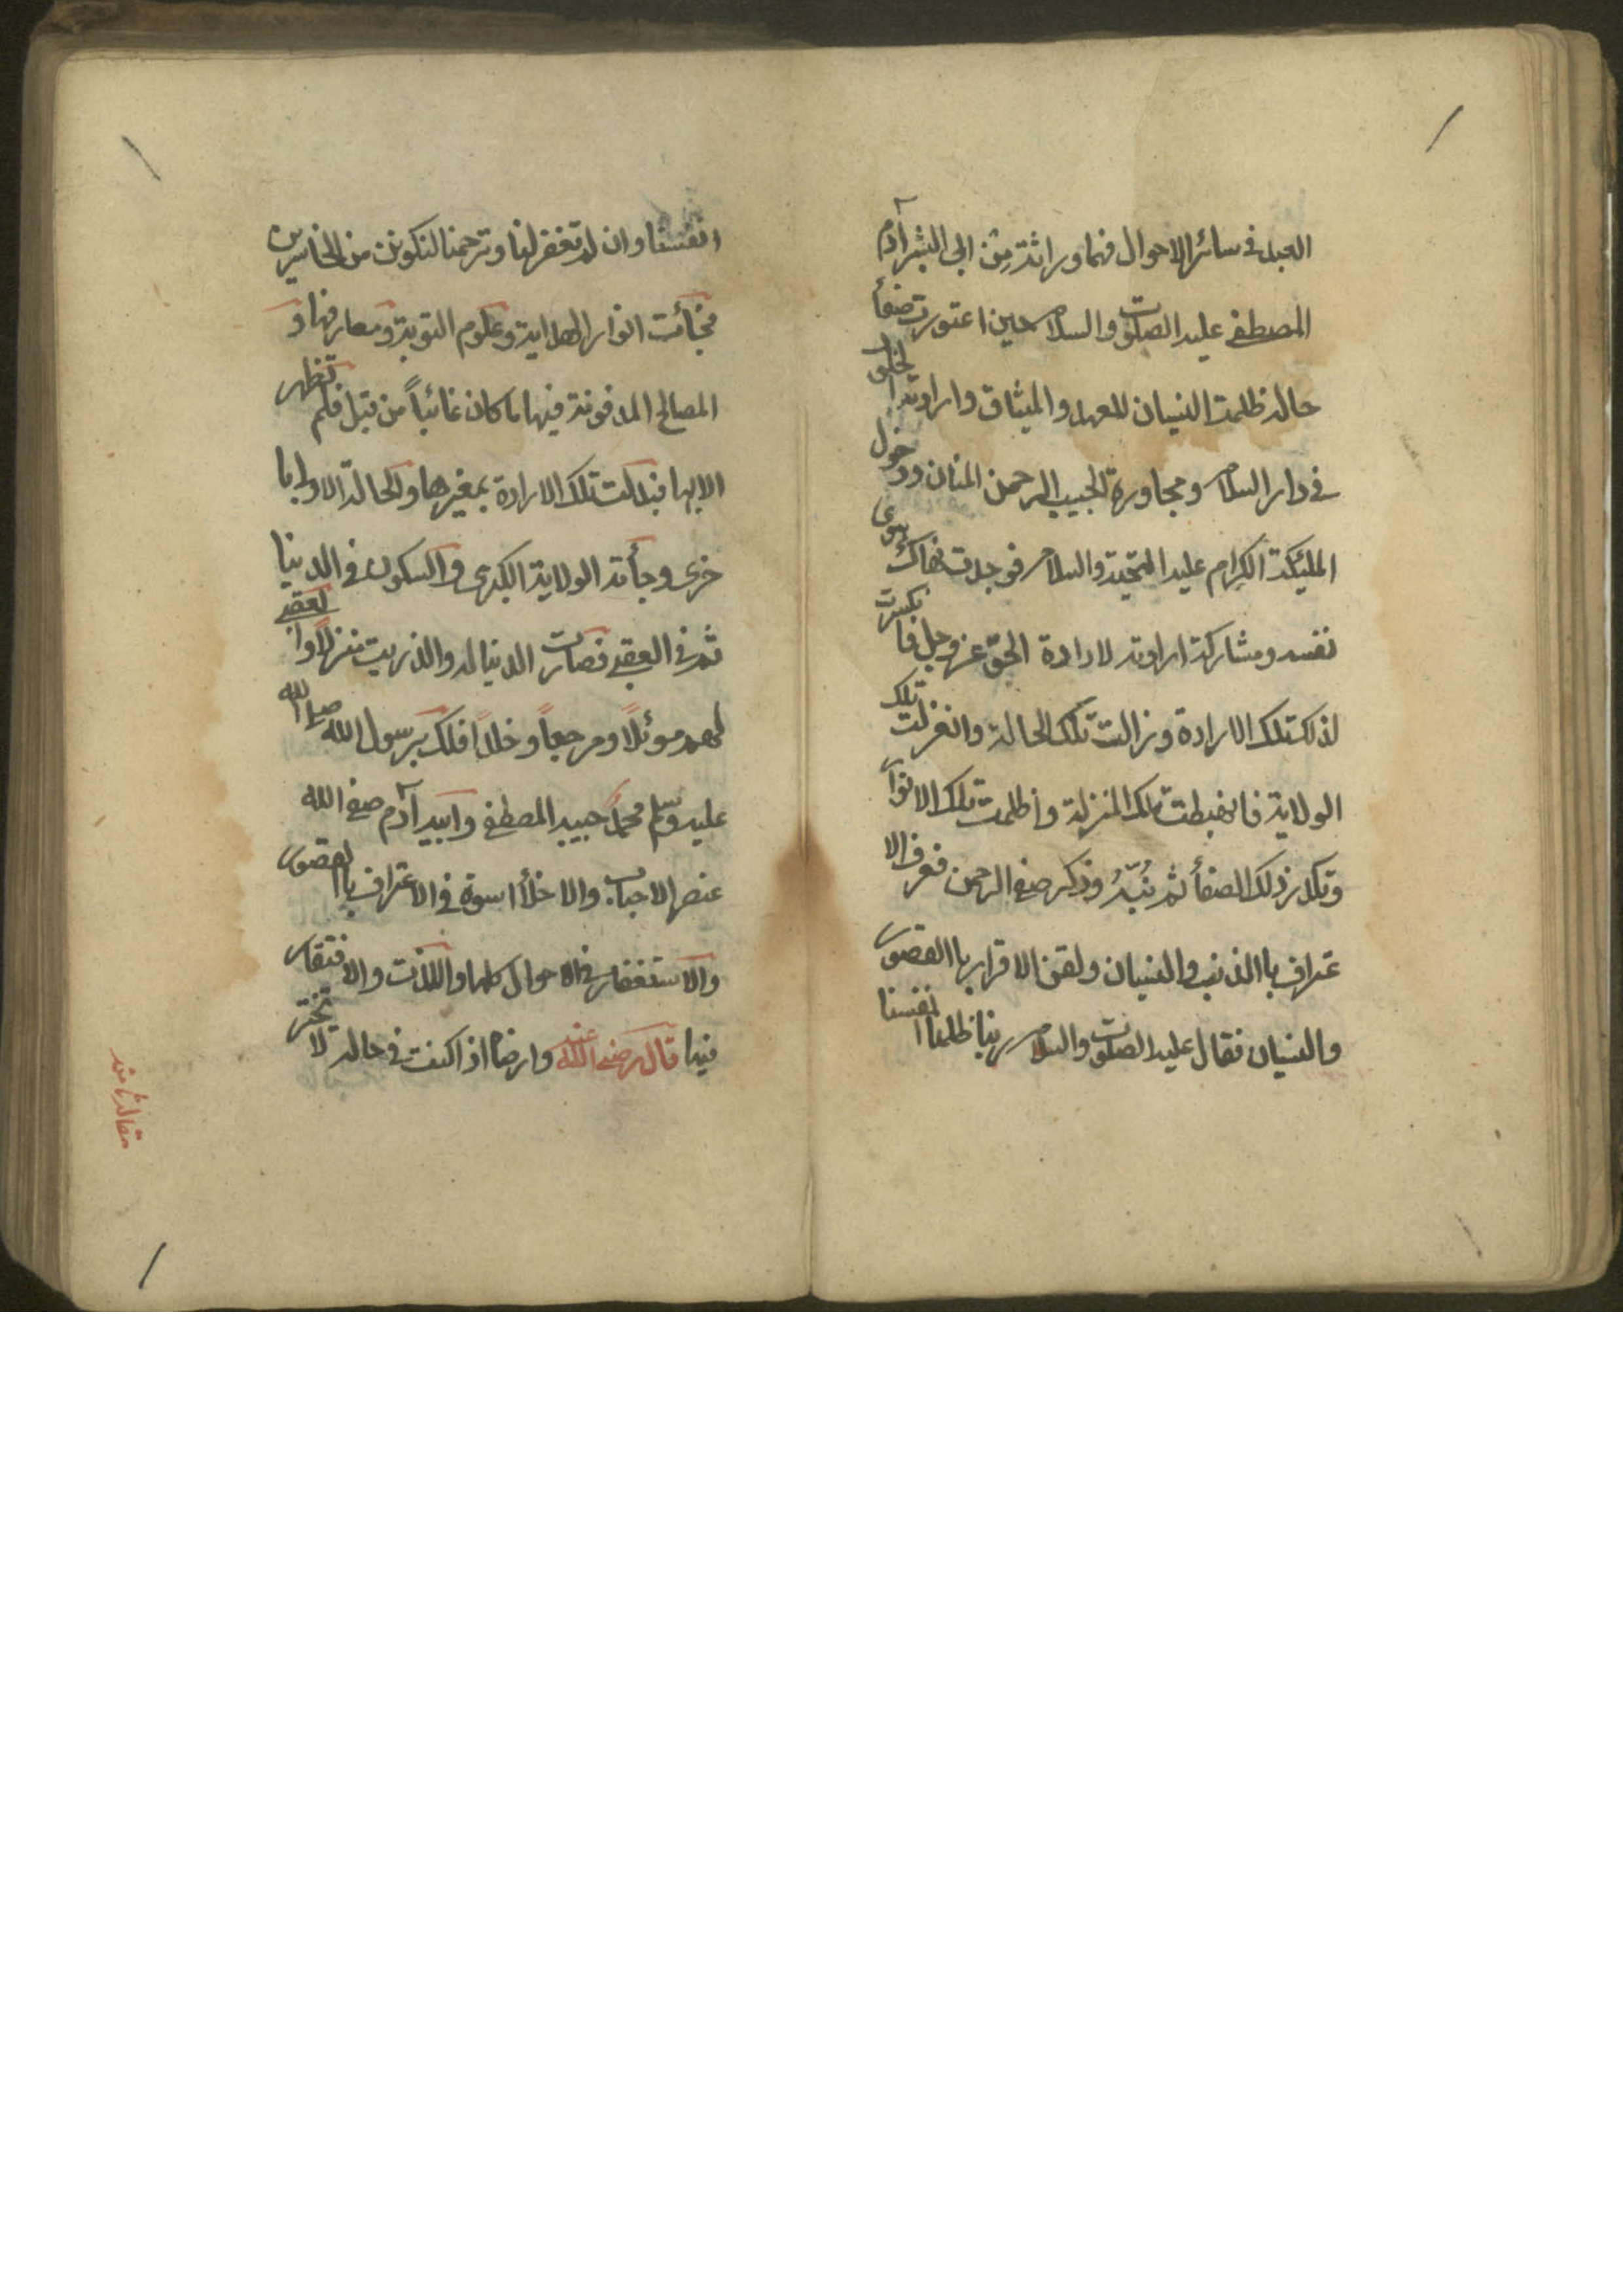 العبد في سائر الاحوال فهما وراثة من ابي البشر آدم
المصطفى عليه الصلوت والسلام حين اعتورت صفأ
حاله ظلمت النسيان للعهد والميثاق وارادته الخلود
في دار السلام ومجاورة الحبيب الرحمن المنان ودخول
المليكة الكرام عليه التحية والسلام فوجدت هناك هوى
نفسه ومشاركة ارادته لارادة الحق عز وجل فانكسرت
لذلك تلك الارادة وزالت تلك الحالة وانعزلت تلك
الولاية فانهبطت تلك المنزلة واظلمت تلك الانوار
وتكدر ذلك الصفأ ثم نُبّهُ وذكر صفي الرحمن فعرف الا
عتراف باالذنب والنسيان ولقن الاقرار باالقصور
والنسيان فقال عليه الصلوت والسلام ربنا ظلمنا انفسنا
انفسنا وان لم تغفر لنا وترحمنا لنكونن من الخاسرين
فجأت انوار الهداية وعلوم التوبة ومعارفها و
المصالح المدفونة فيها ما كان غائباً من قبل فلم تظهر
الا بها فبدلت تلك الارادة بغيرها والحالة الاولى با
خرى وجأته الولاية الكبرى والسكون في الدنيا
ثم في العقبى فصارت الدنيا له والذريت منزلاً والعقبى
لهم موئلاً ومرجعاً وخلداً فلك برسول الله صلى الله
عليه وسلم محمد حبيبه المصطفى وابيه آدم صفي الله
عنصر الاحباب والاخلأ اسوة في الاعتراف باالقصور
والاستغفار في الاحوال كلها والذلت والافتقار
فيها قال رضي الله عنه وارضاه اذا كنت في حالة لا تختر
مقالة ثامنه